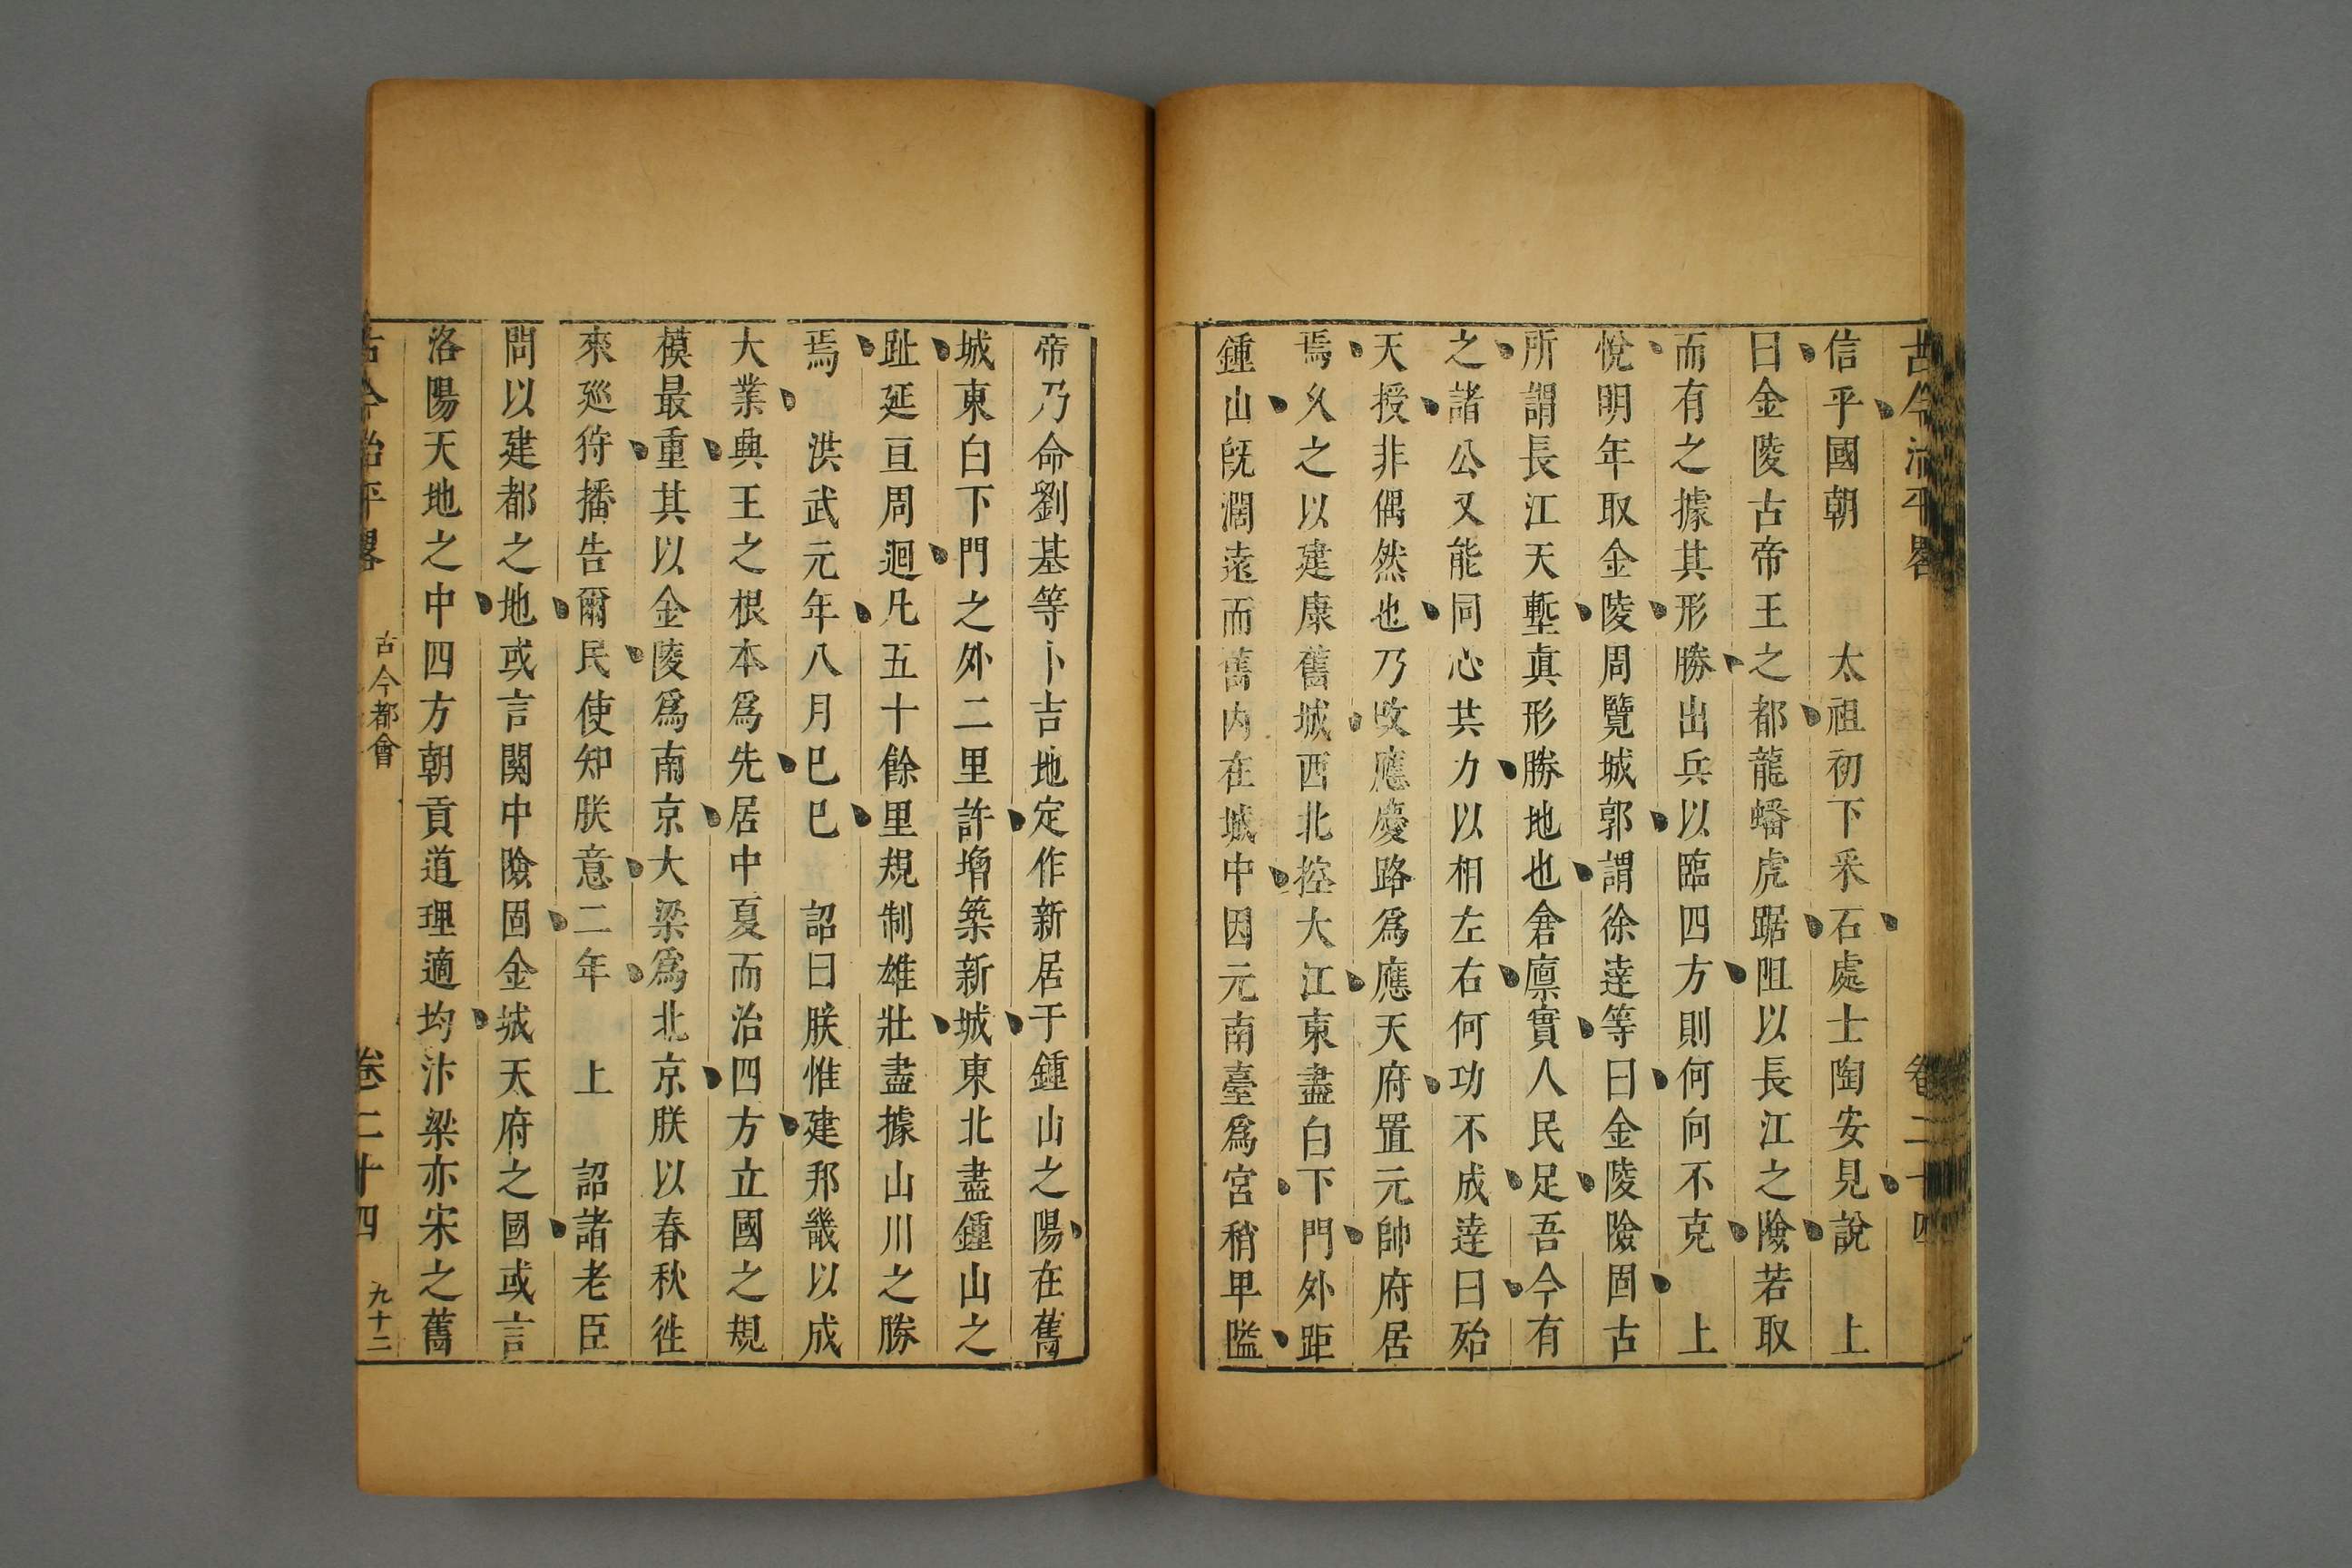 古今治平畧 卷二十四
信乎國朝 太祖初下采石處士陶安見說 上
曰金陵古帝王之都龍蟠虎踞阻以長江之險若取
而有之據其形勝出兵以臨四方則何向不克 上
悅明年取金陵周覽城郭謂徐逹等曰金陵險固古
所謂長江天塹真形勝地也倉廪實人民足吾今有
之諸公又能同心共力以相左右何功不成逹曰殆
天授非偶然也乃改應慶路爲應天府置元帥府居
焉久之以建康舊城西北控大江東盡白下門外距
鍾山旣濶遠而舊内在城中因元南臺爲宮稍卑隘
帝乃命劉基等卜吉地定作新居于鍾山之陽在舊
城東白下門之外二里許增築新城東北盡鍾山之
趾延亘周迴凡五十餘里規制雄壯盡據山川之勝
焉 洪武元年八月巳巳 詔曰朕惟建邦畿以成
大業興王之根本爲先居中夏而治四方立國之規
模最重其以金陵爲南京大梁爲北京朕以春秋徃
來廵狩播告爾民使知朕意二年 上 詔諸老臣
問以建都之地或言関中險固金城天府之國或言
洛陽天地之中四方朝貢道理適均汴梁亦宋之舊
古今治平畧 古今都會 卷二十四 九十二